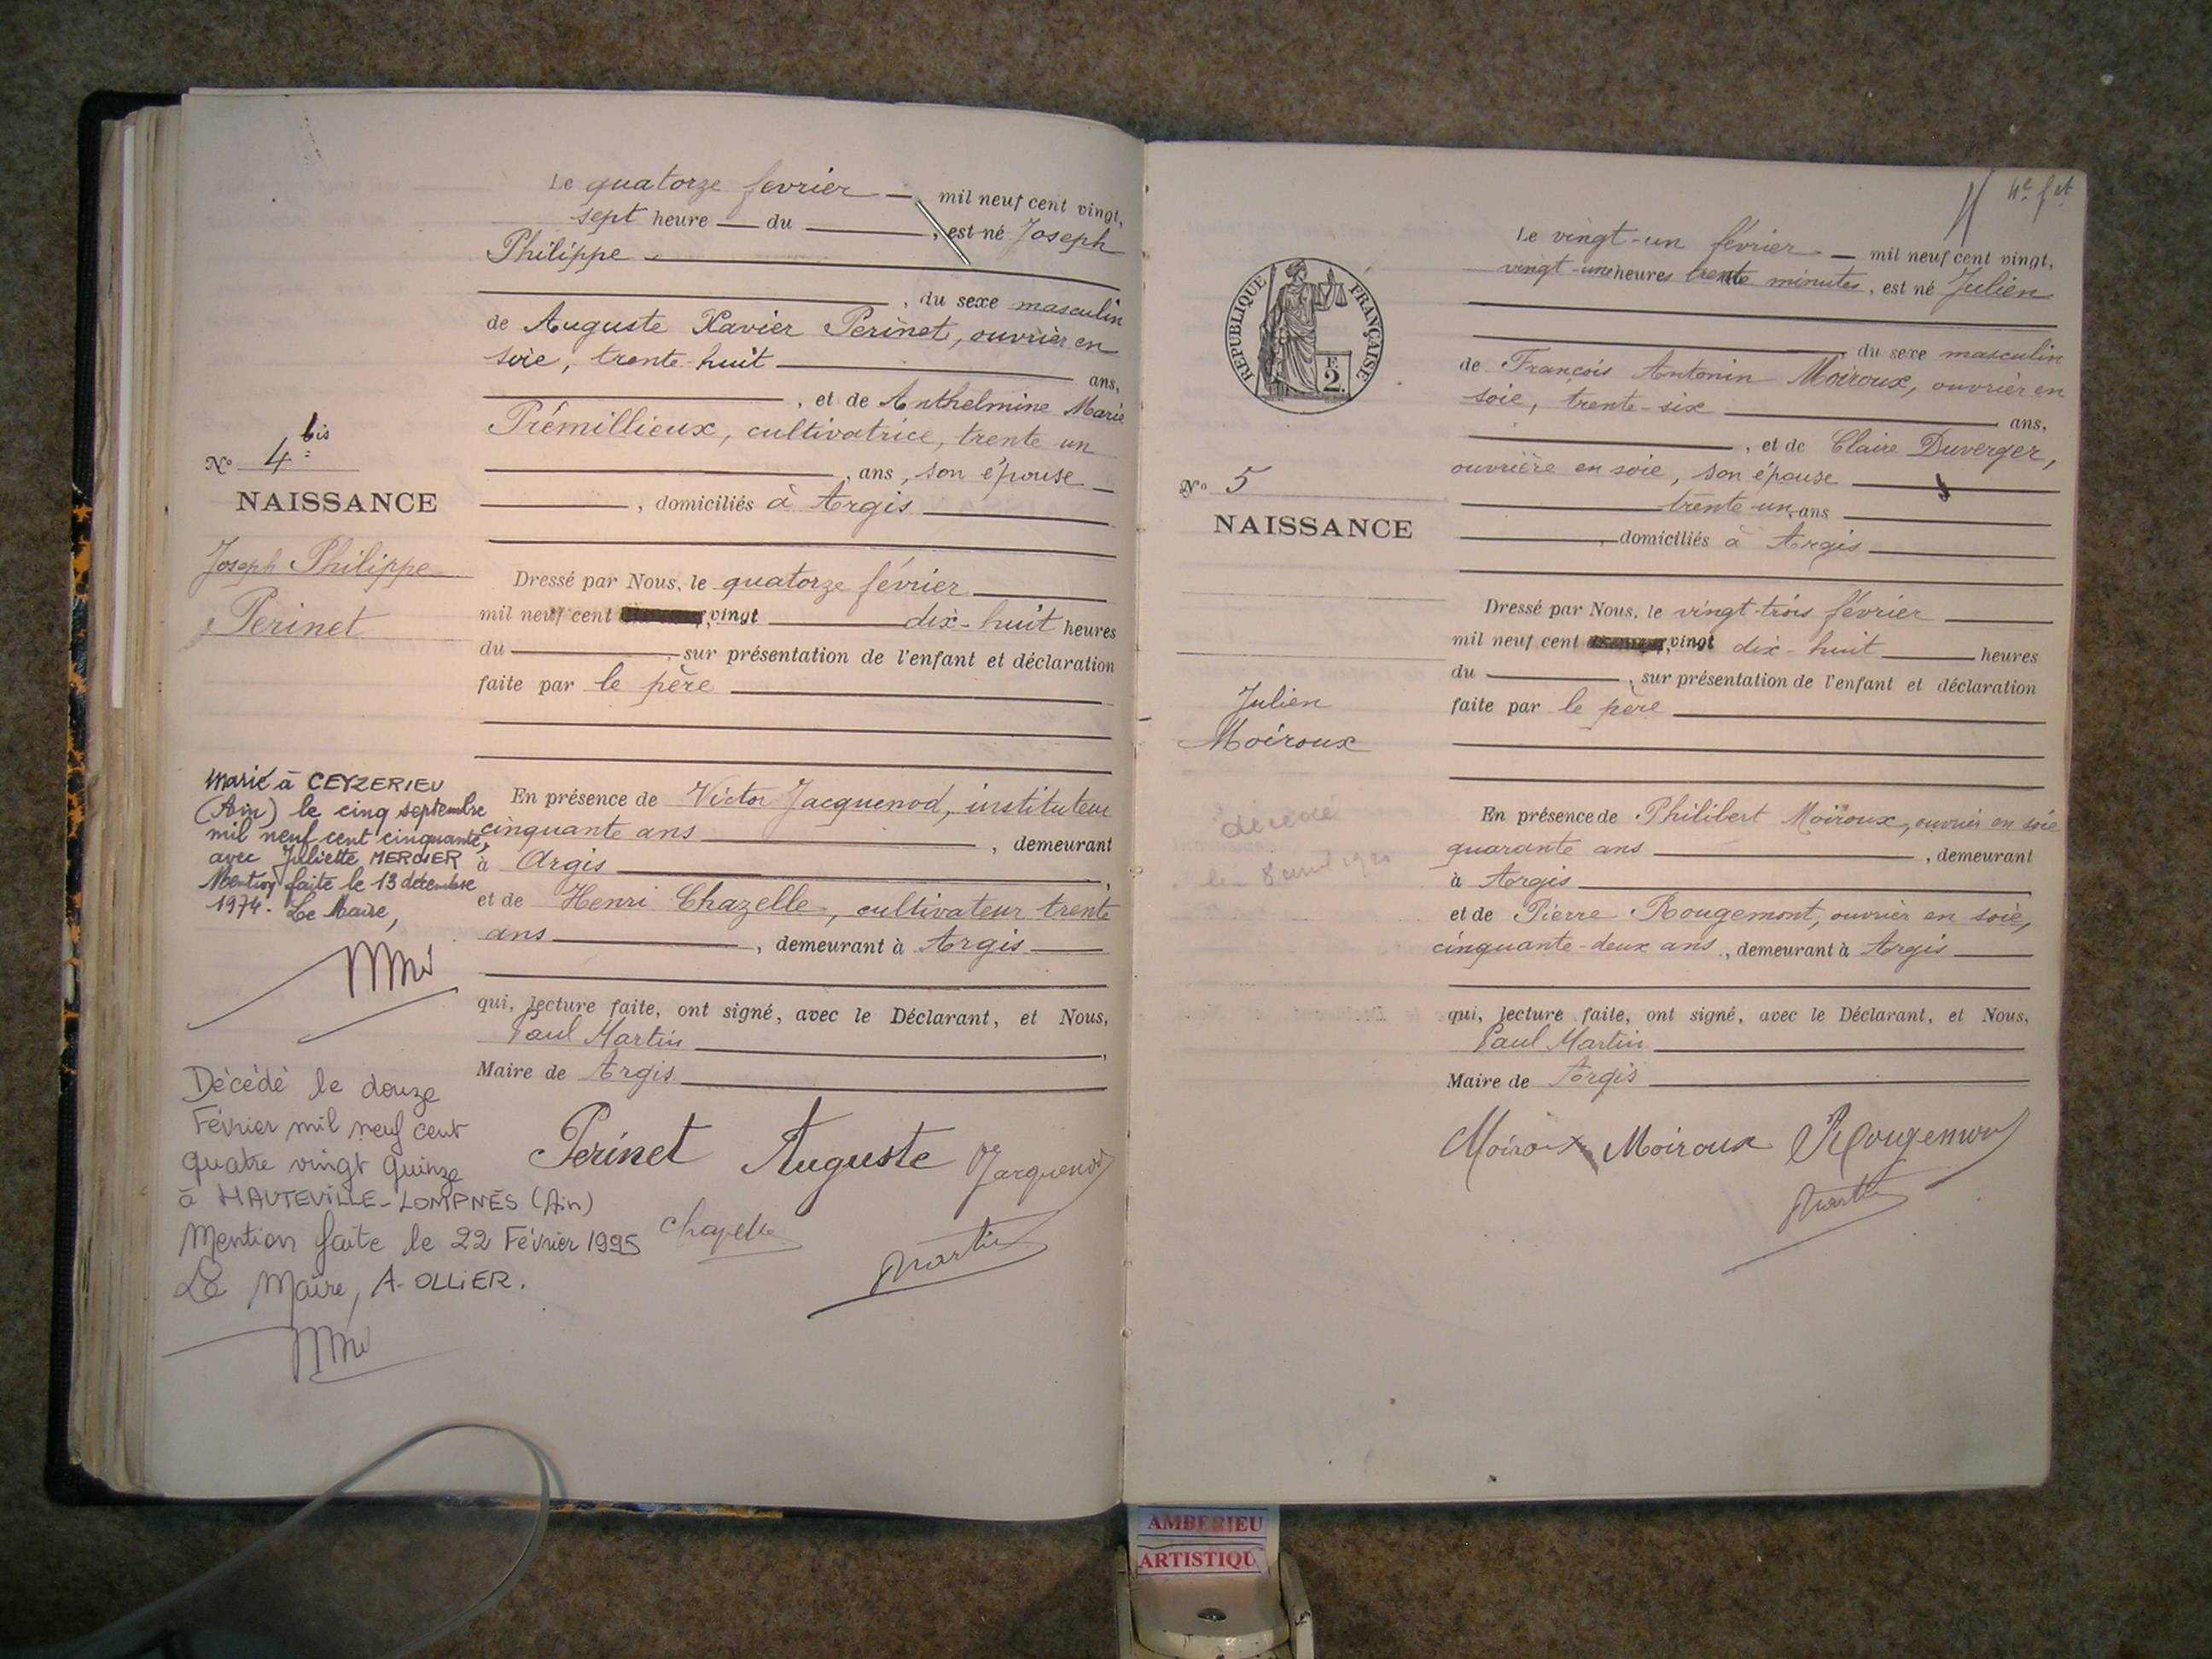 Le quatorze fevrier — mil neuf cent vingt,
sept heure — du — , est né Joseph
Philippe
, du sexe masculin
de Auguste Xavier Perinet, ouvrier en
soie, trente-huit ans,
, et de Anthelmine Marie
Prémillieux, cultivatrice, trente un
, ans, son épouse
, domiciliés à Argis
Dressé par Nous, le quatorze février
mil neuf cent vingt dix-huit heures
du , sur présentation de l'enfant et déclaration
faite par le père
En présence de Victor Jacquenod, instituteur
cinquante ans , demeurant
à Argis ,
et de Henri Chazelle, cultivateur trente
ans , demeurant à Argis
qui, lecture faite, ont signé, avec le Déclarant, et Nous,
Paul Martin ,
Maire de Argis
Perinet Auguste Jacquenod
Chazelle
Martin
No 4 bis
NAISSANCE
Joseph Philippe
Perinet
Marié à CEYZERIEU
(Ain) le cinq septembre
mil neuf cent cinquante,
avec Juliette MERCIER
Mention faite le 13 décembre
1974. Le Maire,
Décédé le douze
Février mil neuf cent
quatre vingt quinze
à HAUTEVILLE-LOMPNES (Ain)
Mention faite le 22 Février 1995
Le Maire, A. OLLIER.
4e fet
RÉPUBLIQUE FRANÇAISE
2 F.
Le vingt-un février — mil neuf cent vingt,
vingt-une heures trente minutes, est né Julien
, du sexe masculin
de François Antonin Moiroux, ouvrier en
soie, trente-six ans,
, et de Claire Duverger,
ouvrière en soie, son épouse
trente-un, ans
, domiciliés à Argis
Dressé par Nous, le vingt-trois février
mil neuf cent vingt dix-huit heures
du , sur présentation de l'enfant et déclaration
faite par le père
En présence de Philibert Moiroux, ouvrier en soie
quarante ans , demeurant
à Argis
et de Pierre Rougemont, ouvrier en soie,
cinquante-deux ans , demeurant à Argis
qui, lecture faite, ont signé, avec le Déclarant, et Nous,
Paul Martin
Maire de Argis
Moiroux Moiroux Rougemont
Martin
No 5
NAISSANCE
Julien
Moiroux
décédé
le 8 avril 1920
AMBERIEU
ARTISTIQU